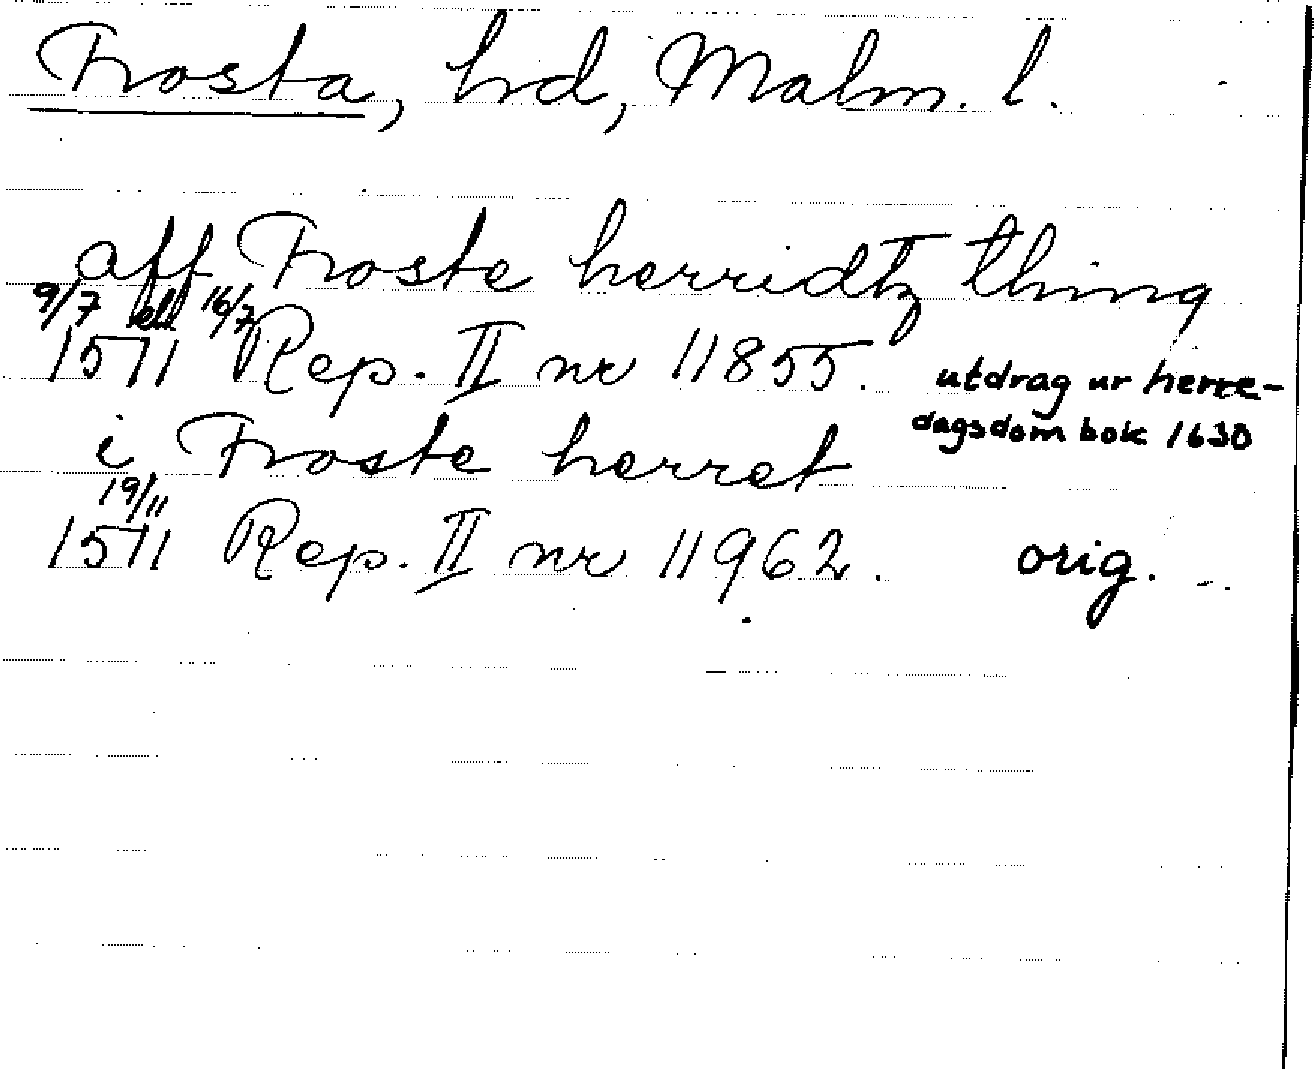 Frosta, hd, Malm. l.
aff Froste herridtz thing
9/7 ell 16/7
1571 Rep. II nr 11855. utdrag ur herre-
dagsdombok 1630
i Froste herret
19/11
1571 Rep. II nr 11962. orig.